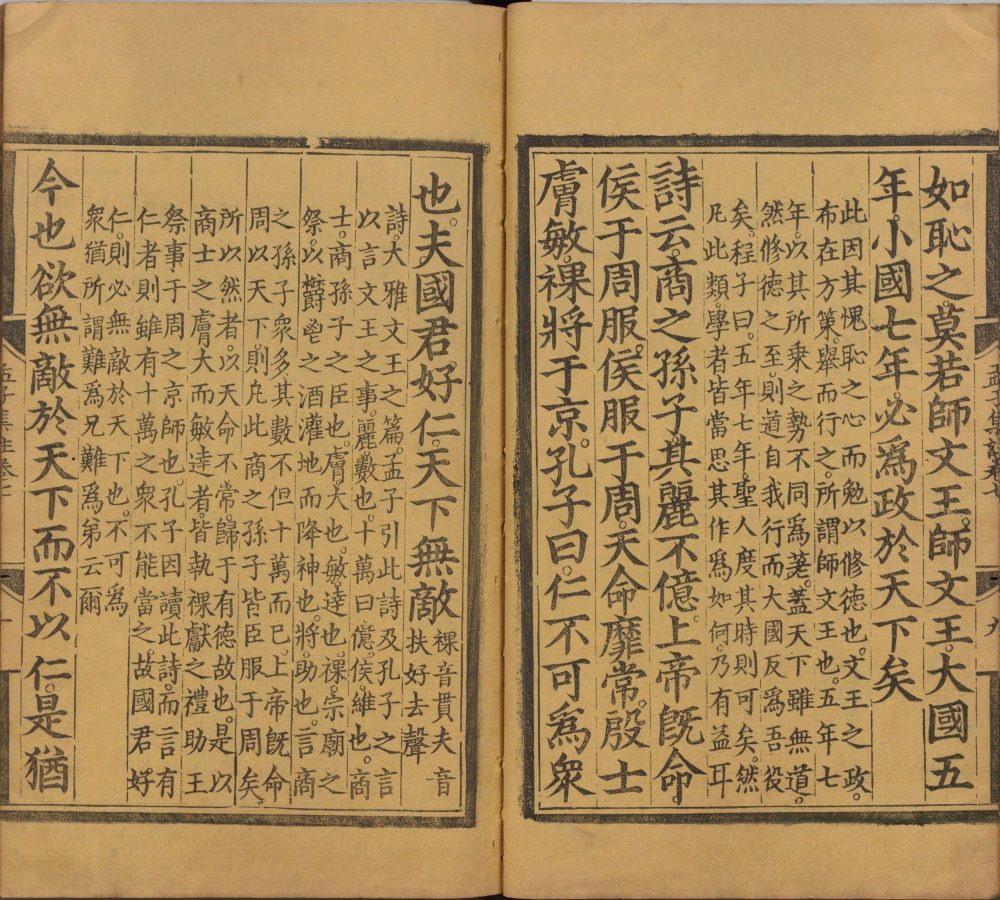 如恥之。莫若師文王。師文王。大國五
年。小國七年。必爲政於天下矣
此因其愧恥之心而勉以修德也。文王之政。
布在方策。舉而行之。所謂師文王也。五年七
年。以其所乘之勢不同爲差。蓋天下雖無道。
然修德之至。則道自我行。而大國反爲吾役
矣。程子曰。五年七年。聖人度其時則可矣。然
凡此類。學者皆當思其作爲如何。乃有益耳
詩云。商之孫子。其麗不億。上帝旣命。
侯于周服。侯服于周。天命靡常。殷士
膚敏。祼將于京。孔子曰。仁不可爲衆
也。夫國君好仁。天下無敵
祼音貫夫音
扶好去聲
詩大雅文王之篇。孟子引此詩及孔子之言
以言文王之事。麗數也。十萬曰億。侯維也。商
士。商孫子之臣也。膚大也。敏達也。祼。宗廟之
祭。以鬱鬯之酒灌地而降神也。將助也。言商
之孫子衆多其數不但十萬而已。上帝旣命
周以天下。則凡此商之孫子皆臣服于周矣。
所以然者。以天命不常歸于有德故也。是以
商士之膚大而敏達者。皆執祼獻之禮助王
祭事于周之京師也。孔子因讀此詩。而言有
仁者則雖有十萬之衆不能當之。故國君好
仁。則必無敵於天下也。不可爲
衆猶所謂難爲兄難爲弟云爾
今也欲無敵於天下而不以仁。是猶